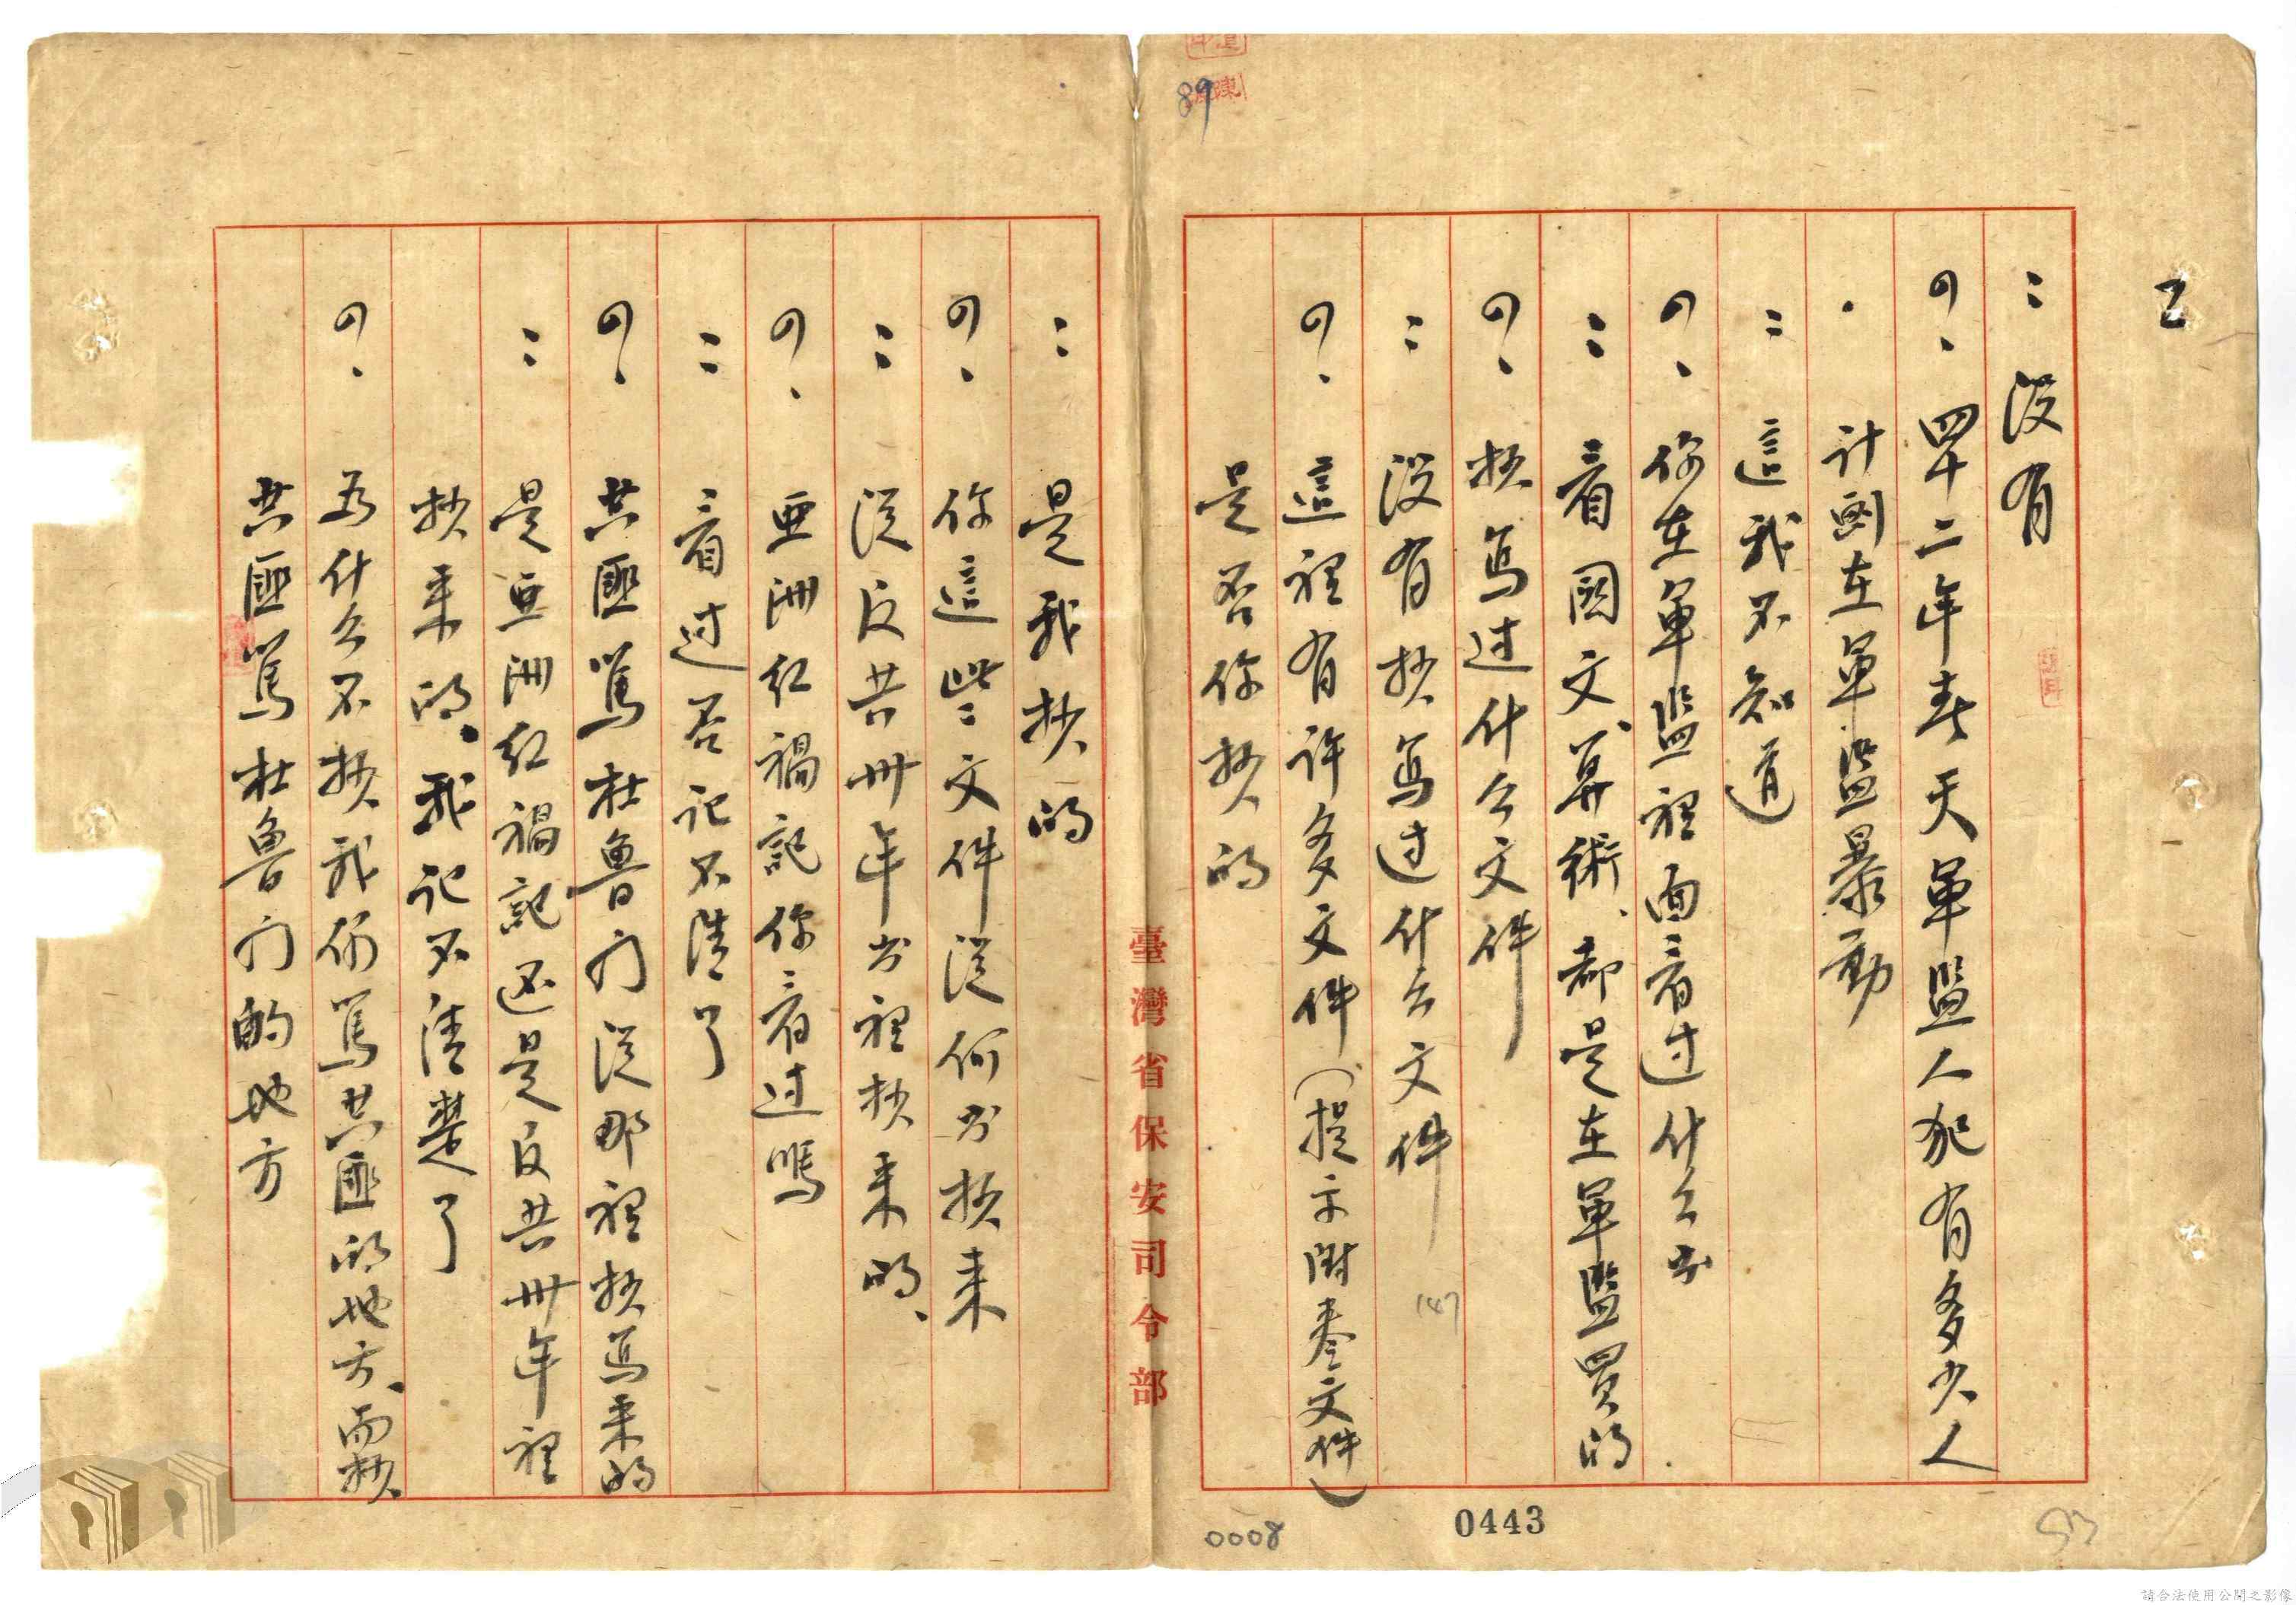 89
2
：没有
？、四十二年春天軍监人犯有多少人
・計劃在軍监暴動
：這我不知道
？、你在軍监裡面看过什么书
：看國文、算術、都是在軍监買的
？、抄寫过什么文件
：没有抄寫过什么文件
？、這裡有许多文件（提示附卷文件）
是否你抄的
臺灣省保安司令部
：是我抄的
？、你這些文件從何书抄来
：從反共卅年书裡抄来的、
？、亜洲红禍記你看过嗎
：看过否记不清了
？、共匪罵杜魯门從那裡抄寫来的
：是亜洲红禍記还是反共卅年裡
抄来的、我记不清楚了
？、为什么不抄我们罵共匪的地方、而抄
共匪罵杜魯门的地方
147
0008
0443
請合法使用公開之影像